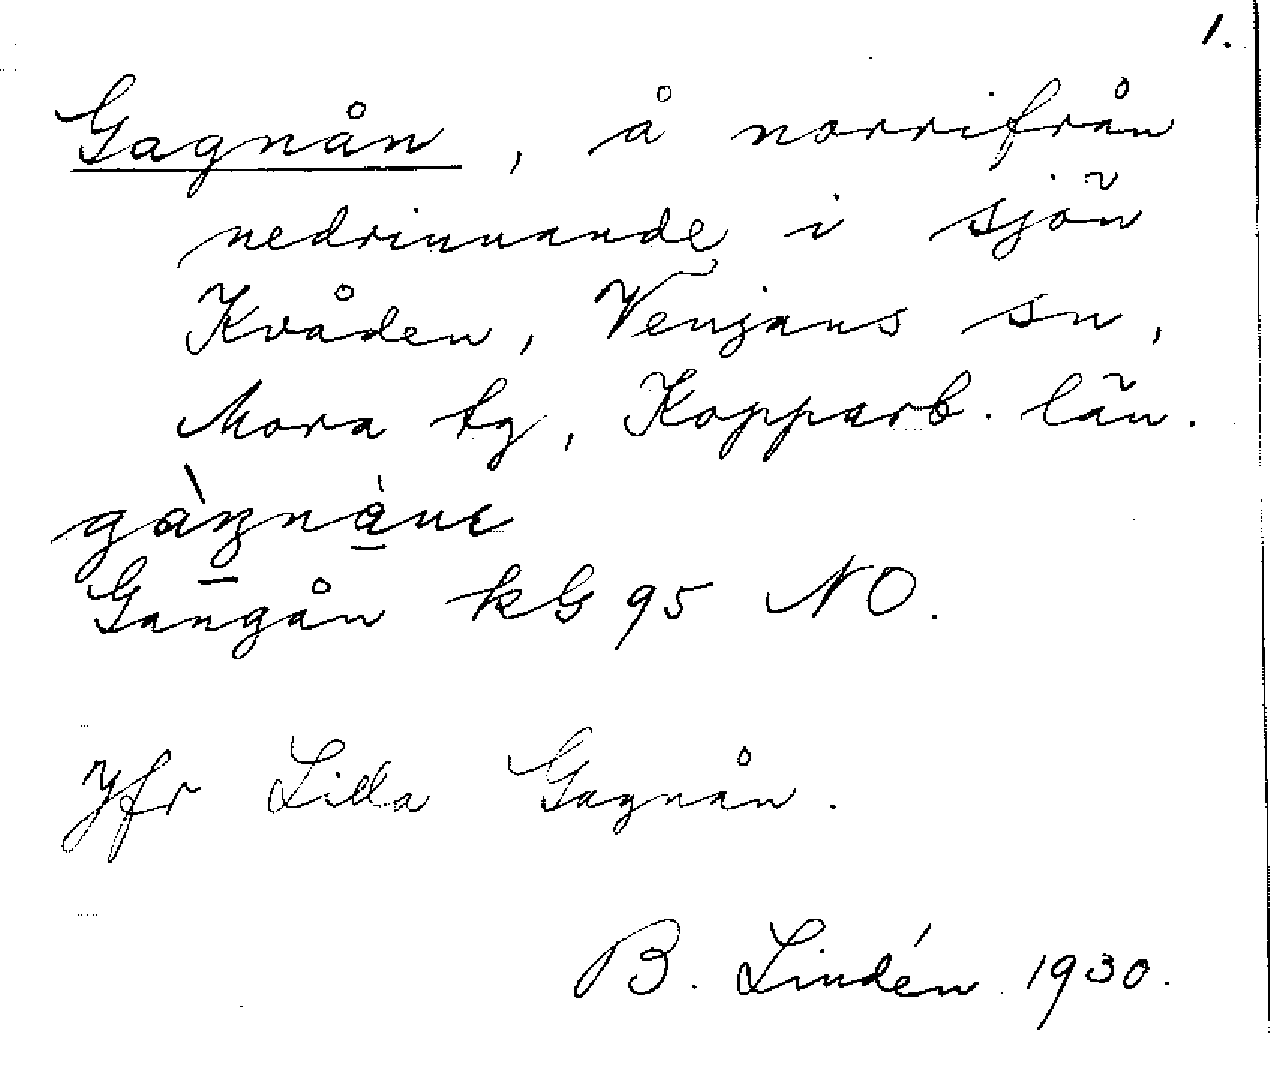 1.
Gagnån, å norrifrån
nedrinnande i sjön
Kvåden, Venjans sn,
Mora tg, Kopparb. län.
Gangån kG 95 NO.
Jfr Lilla Gagnån.
B. Lindén 1930.